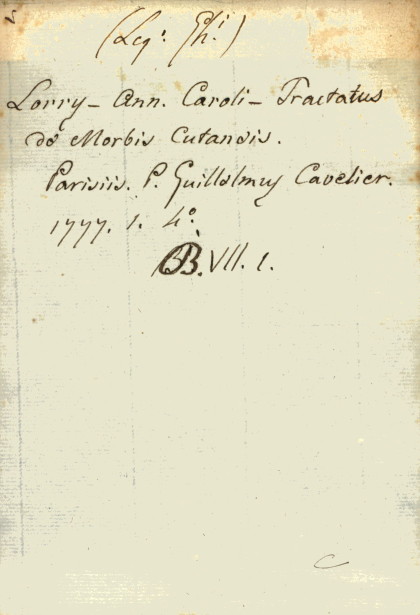 (Leg: Ph:)
Lorry - Ann. Caroli - Tractatus
de Morbis Cutaneis.
Parisiis. P. Guillelmus Cavelier.
1777. 1. 4.º
B. VII. 1.